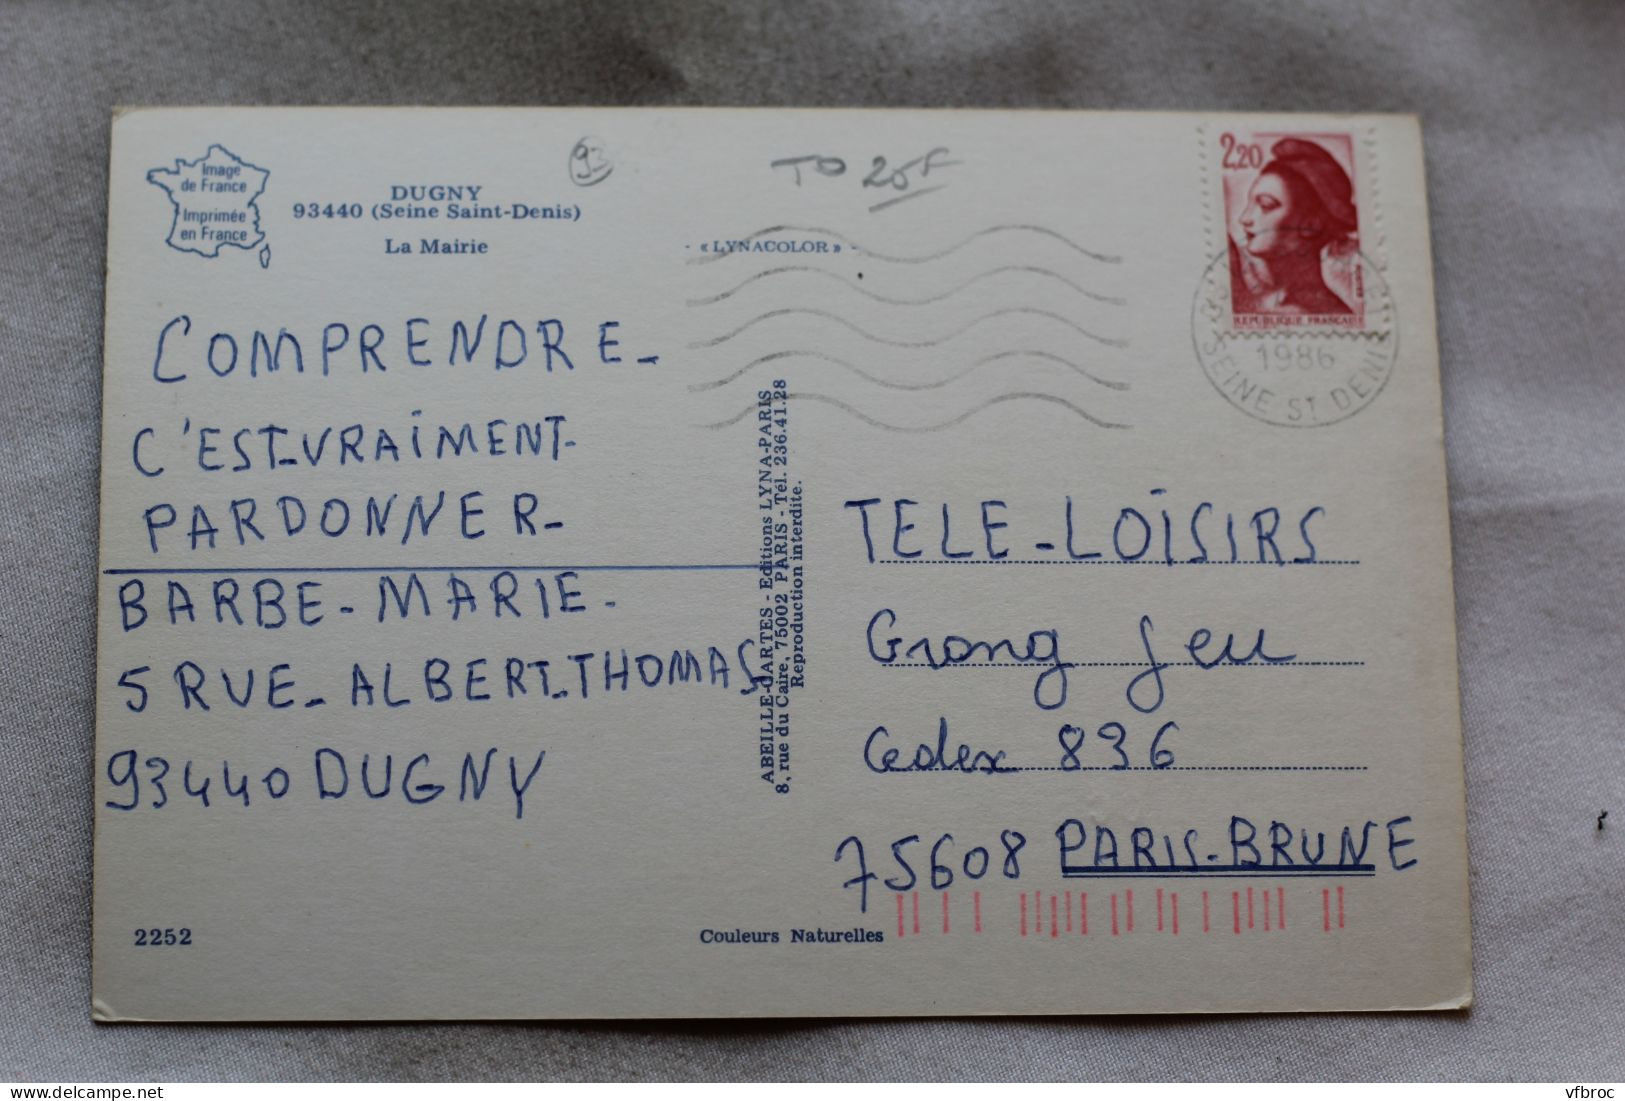 Image
de France
Imprimée
en France
DUGNY
93440 (Seine Saint-Denis)
La Mairie
93
TD 25F
- « LYNACOLOR » -
2,20
REPUBLIQUE FRANCAISE
1986
SEINE ST DENIS
COMPRENDRE_
C'EST_VRAIMENT-
PARDONNER_
BARBE-MARIE-
5 RUE_ALBERT_THOMAS
93440 DUGNY
ABEILLE-CARTES - Editions LYNA-PARIS
8, rue du Caire, 75002 PARIS - Tél. 236.41.28
Reproduction interdite.
TELE-LOÏSIRS
Grang Jeu
Cedex 836
75608 PARIS-BRUNE
2252
Couleurs Naturelles
vfbroc